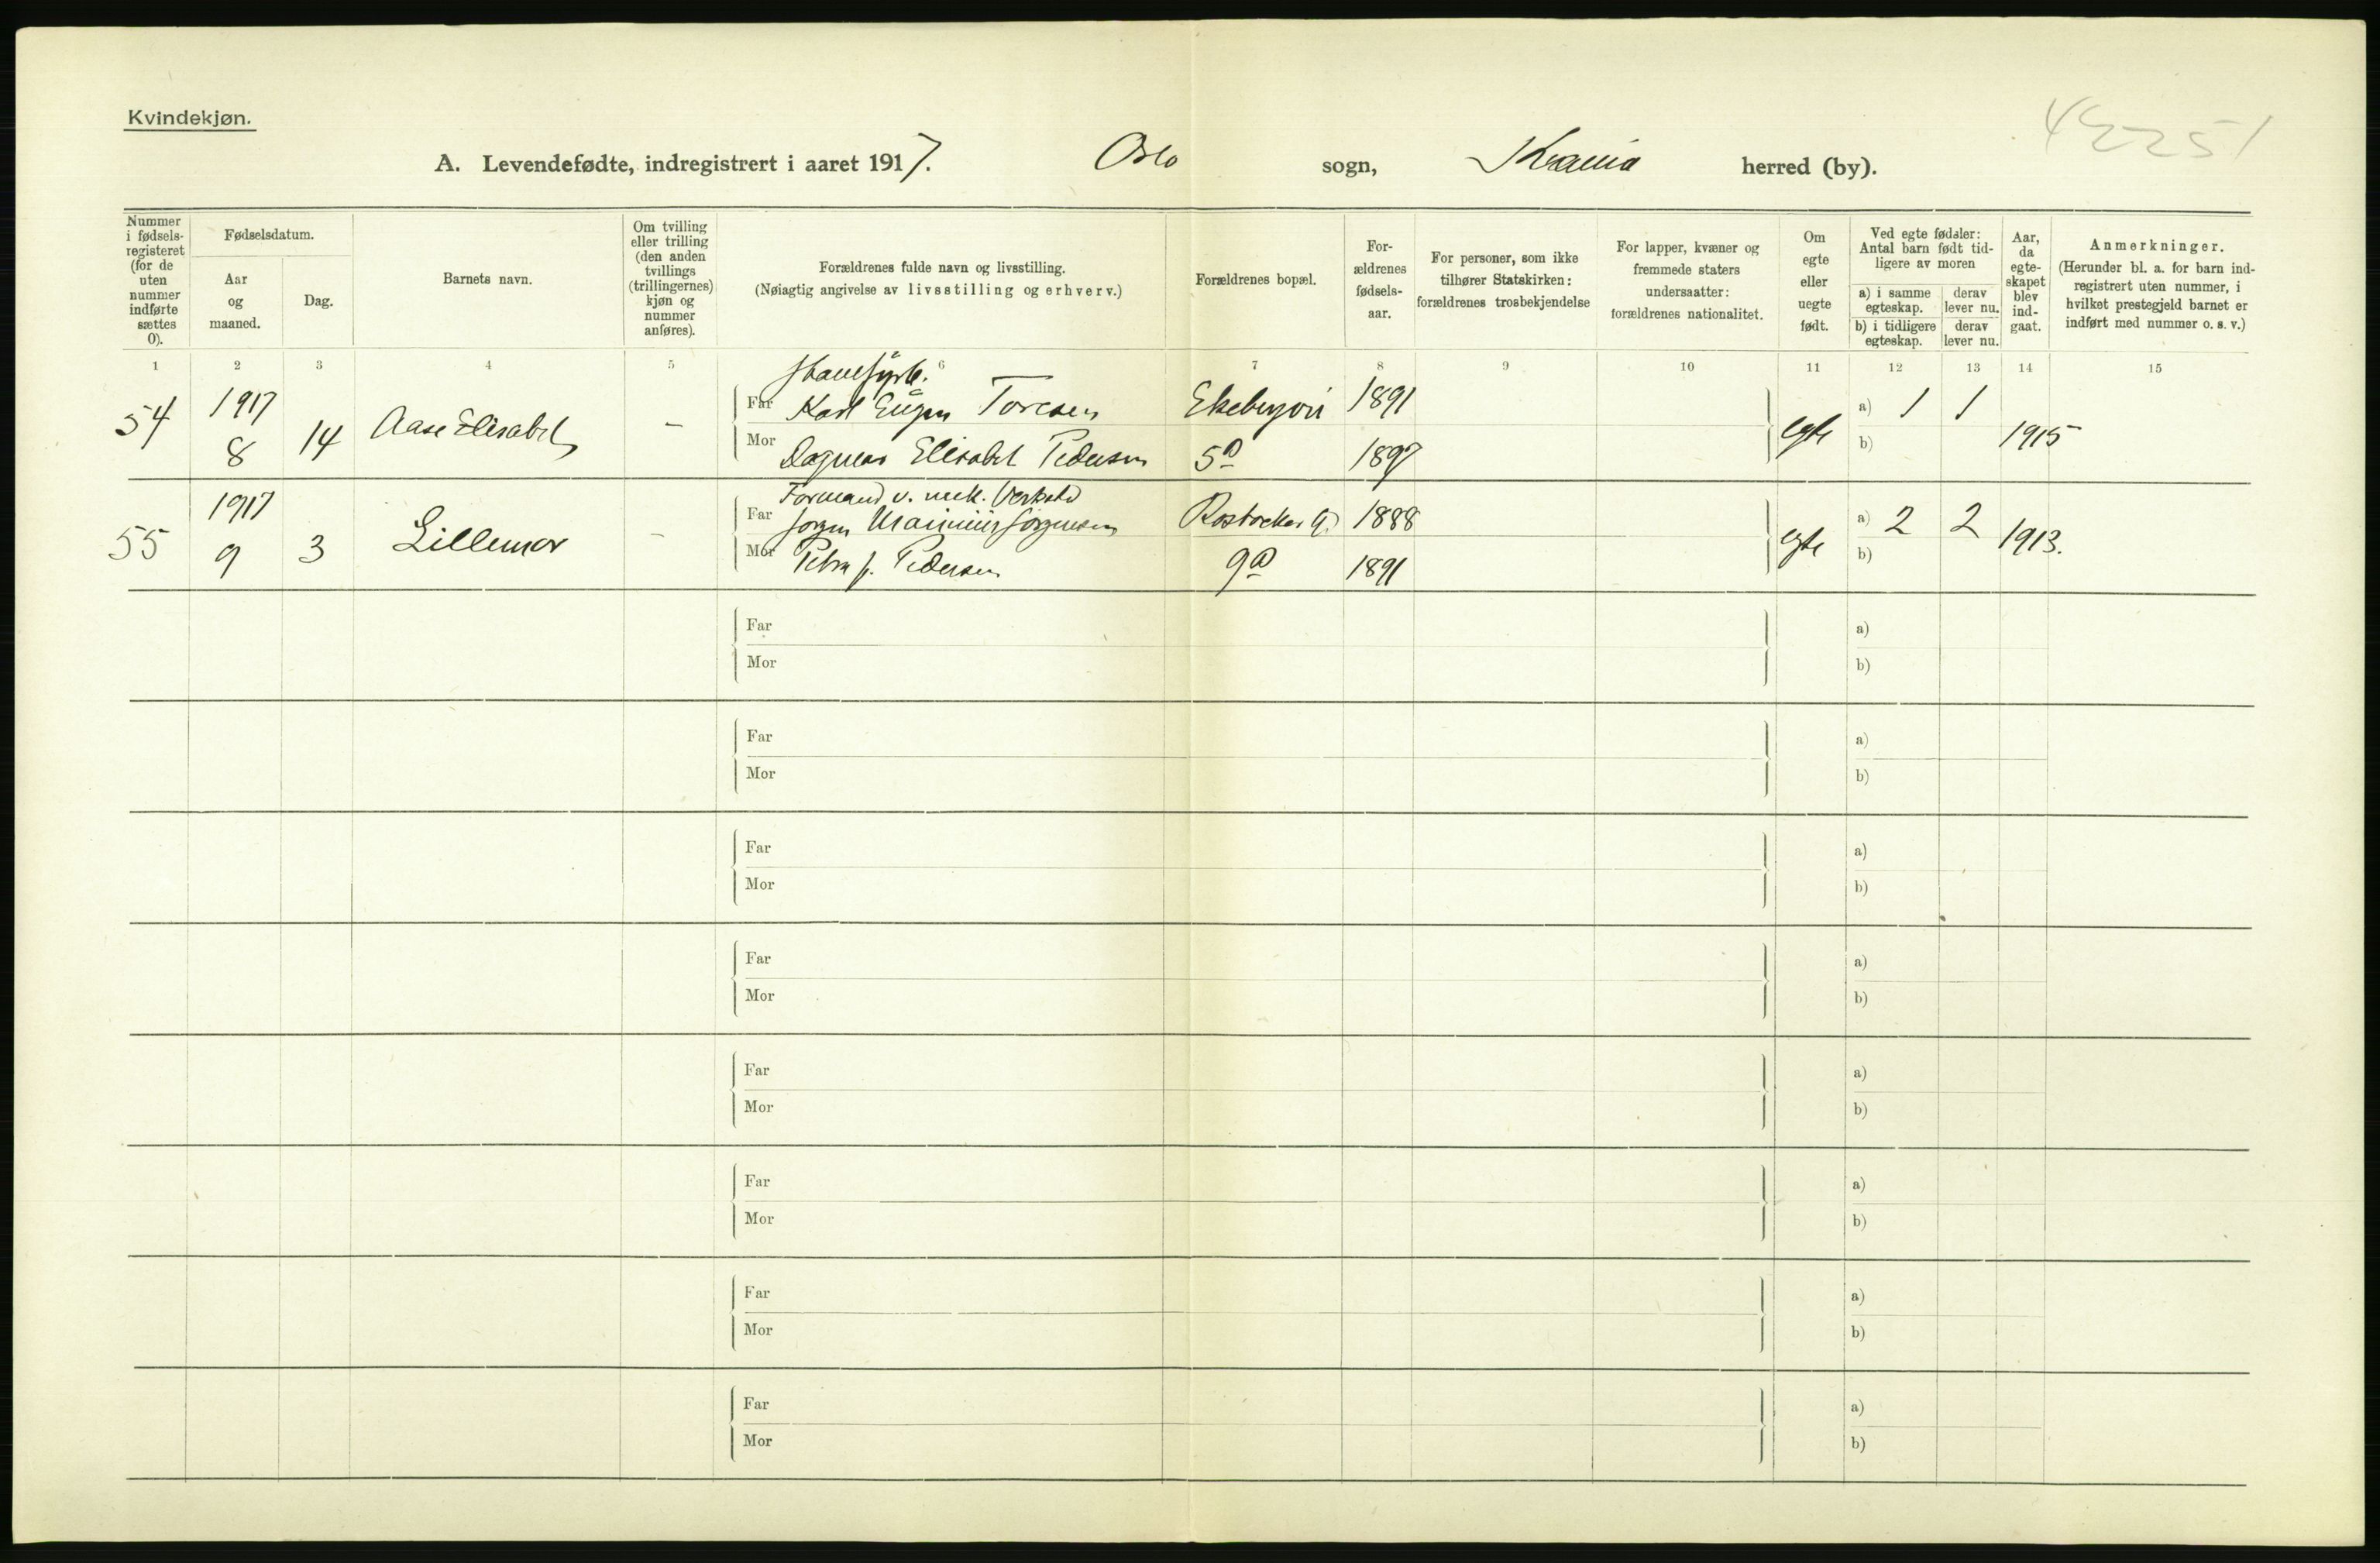 Kvindekjøn.
42251
A. Levendefødte, indregistrert i aaret 1917. Oslo sogn, Krania herred (by).
Nummer i fødselsregisteret (for de uten nummer indførte sættes 0).
Fødselsdatum.
Aar og maaned.
Dag.
Barnets navn.
Om tvilling eller trilling (den anden tvillings (trillingernes) kjøn og nummer anføres).
Forældrenes fulde navn og livsstilling.
(Nøiagtig angivelse av livsstilling og erhverv.)
Forældrenes bopæl.
Forældrenes fødselsaar.
For personer, som ikke tilhører Statskirken: forældrenes trosbekjendelse
For lapper, kvæner og fremmede staters undersaatter: forældrenes nationalitet.
Om egte eller uegte født.
Ved egte fødsler: Antal barn født tidligere av moren
a) i samme egteskap.
derav lever nu.
b) i tidligere egteskap.
derav lever nu.
Aar, da egteskapet blev indgaat.
Anmerkninger.
(Herunder bl. a. for barn indregistrert uten nummer, i hvilket prestegjeld barnet er indført med nummer o. s. v.)
1 2 3 4 5 6 7 8 9 10 11 12 13 14 15
54 1917 8 14 Aase Elisabet –
Far Karl Eugen Toresen
Mor Dagmar Elisabet Pedersen
5a
1891
1897
egte
a) 1 1
b)
1915
55 1917 9 3 Lillemor –
Formand v. mek. Verksted
Far Jørgen Jørgensen
Mor Petra f. Pedersen
Rostocker G.
9a
1888
1891
egte
a) 2 2
b)
1913.
Far a)
Mor b)
Far a)
Mor b)
Far a)
Mor b)
Far a)
Mor b)
Far a)
Mor b)
Far a)
Mor b)
Far a)
Mor b)
Far a)
Mor b)